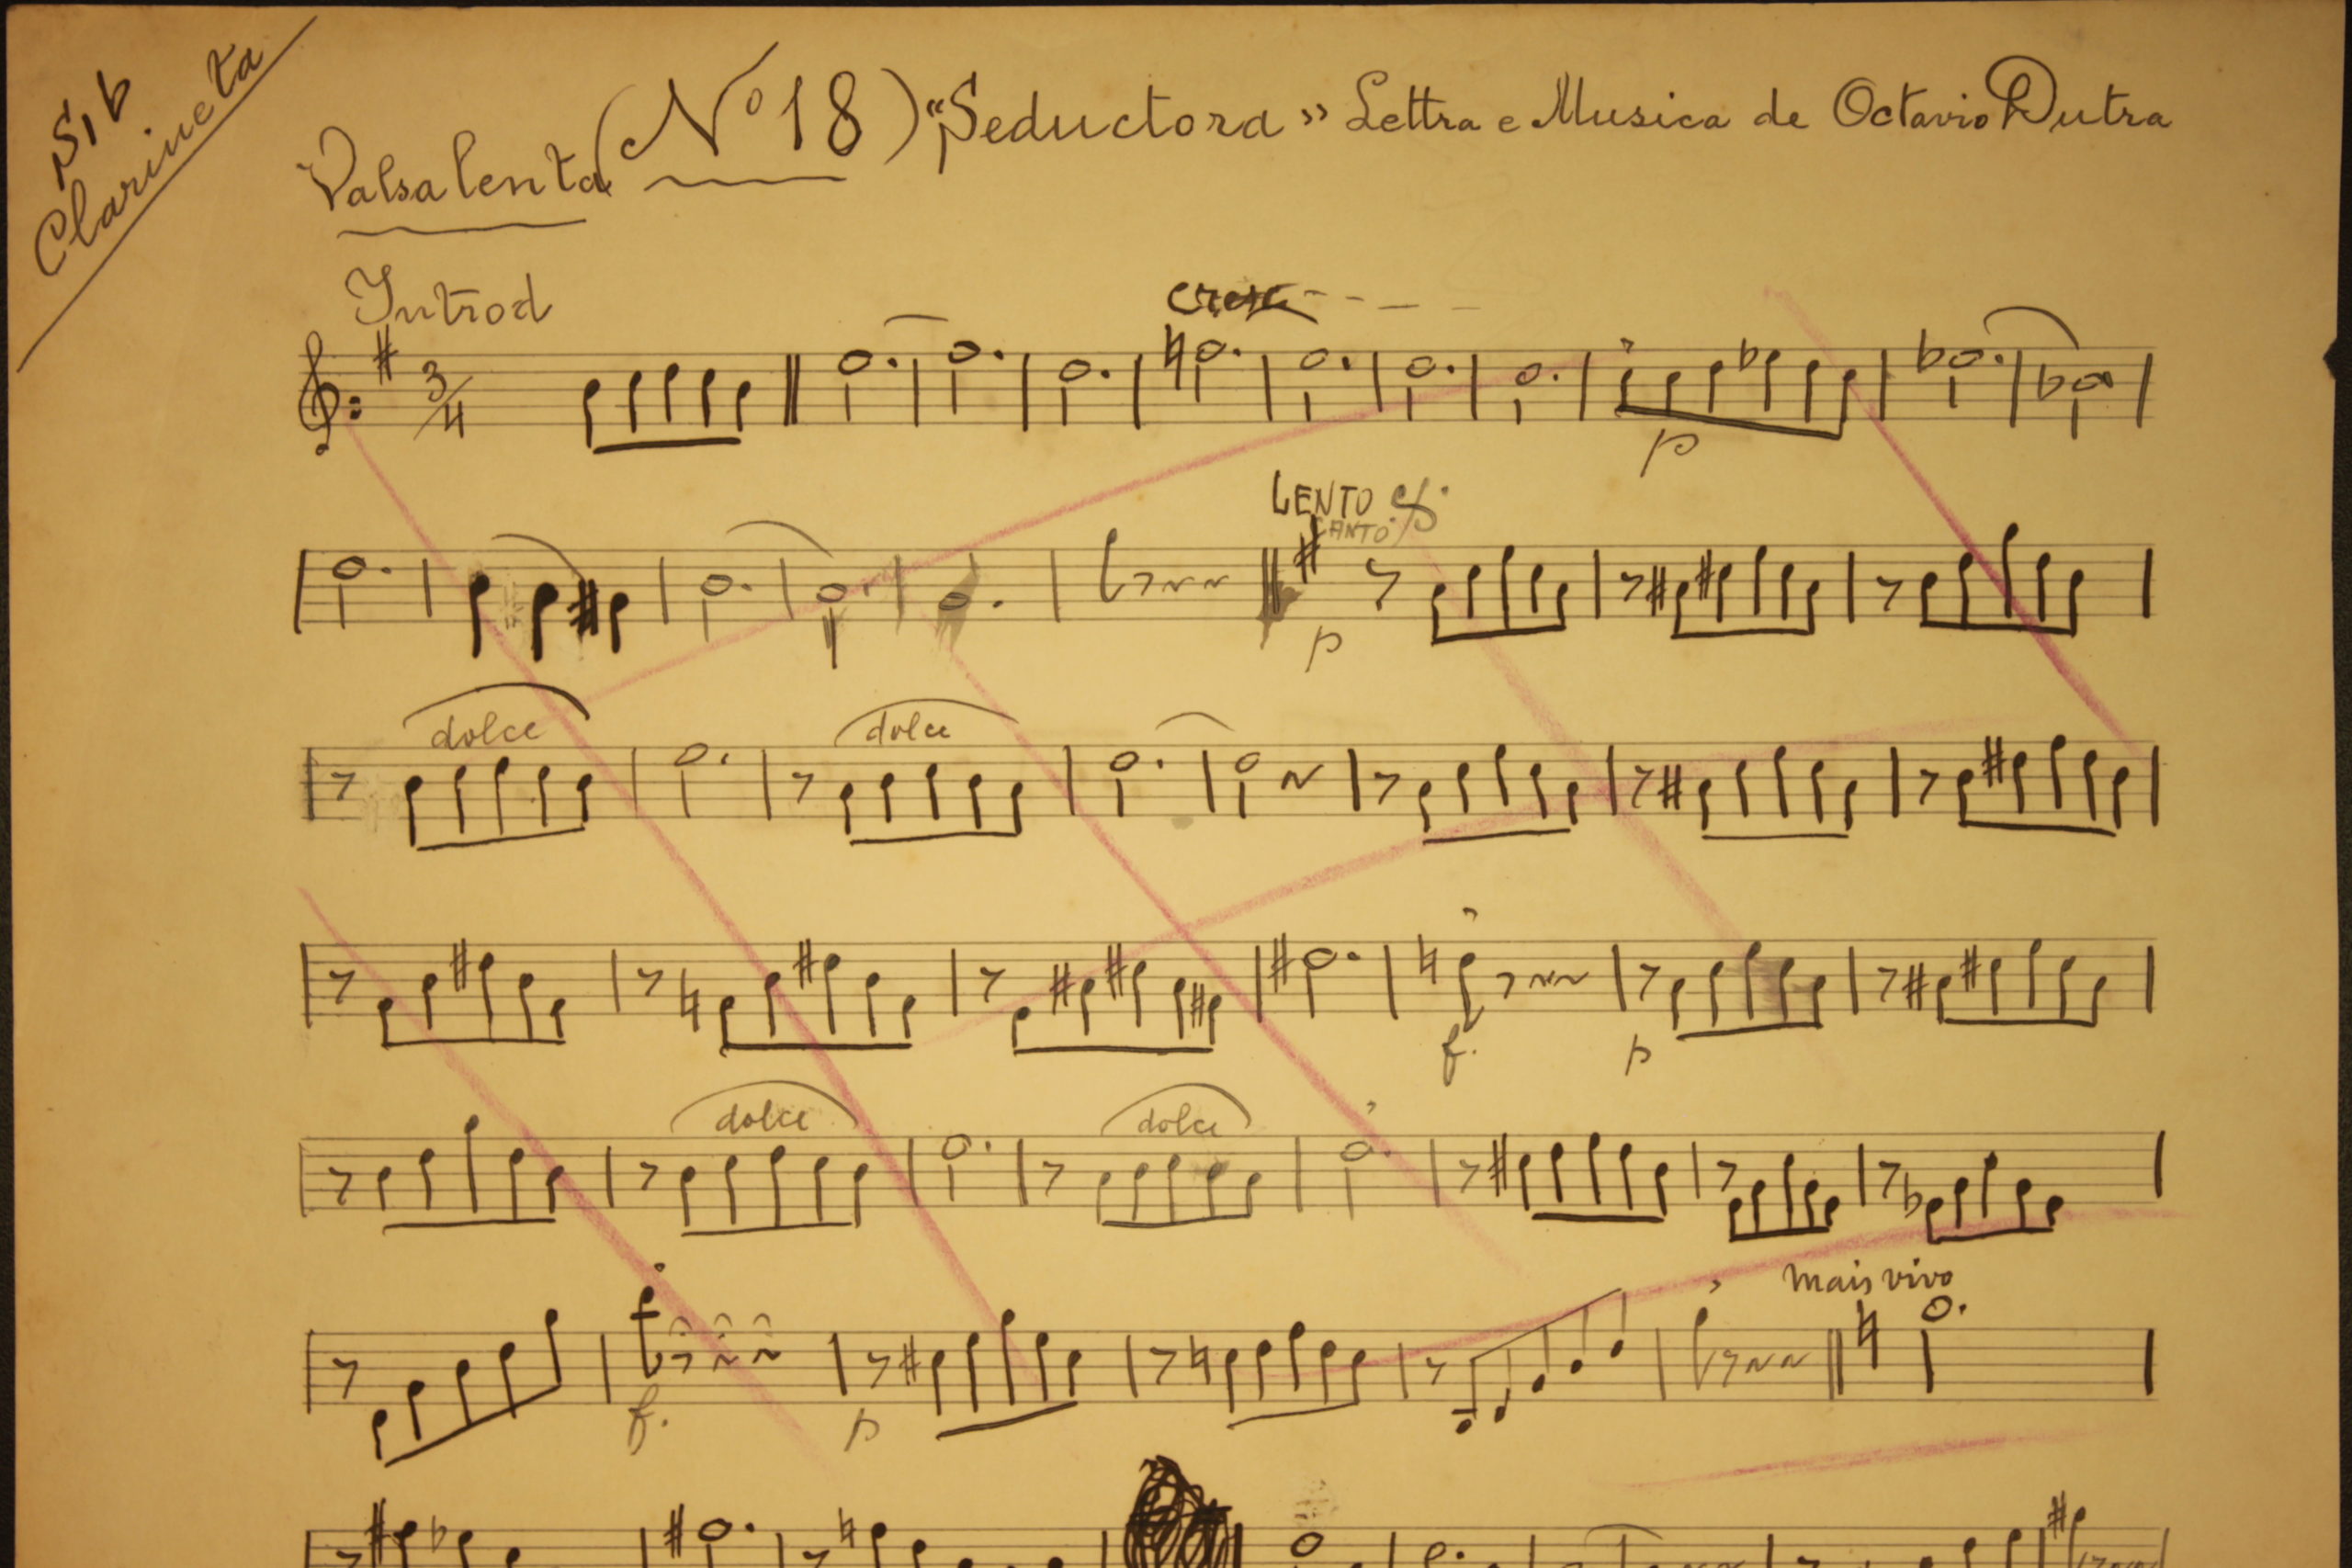 Sib
Clarineta
Valsa lenta (Nº 18) "Seductora" Lettra e Musica de Octavio Dutra
Introd
cresc
3/4
p
LENTO
CANTO
p
dolce
dolce
f.
p
dolce
dolce
mais vivo
f.
p